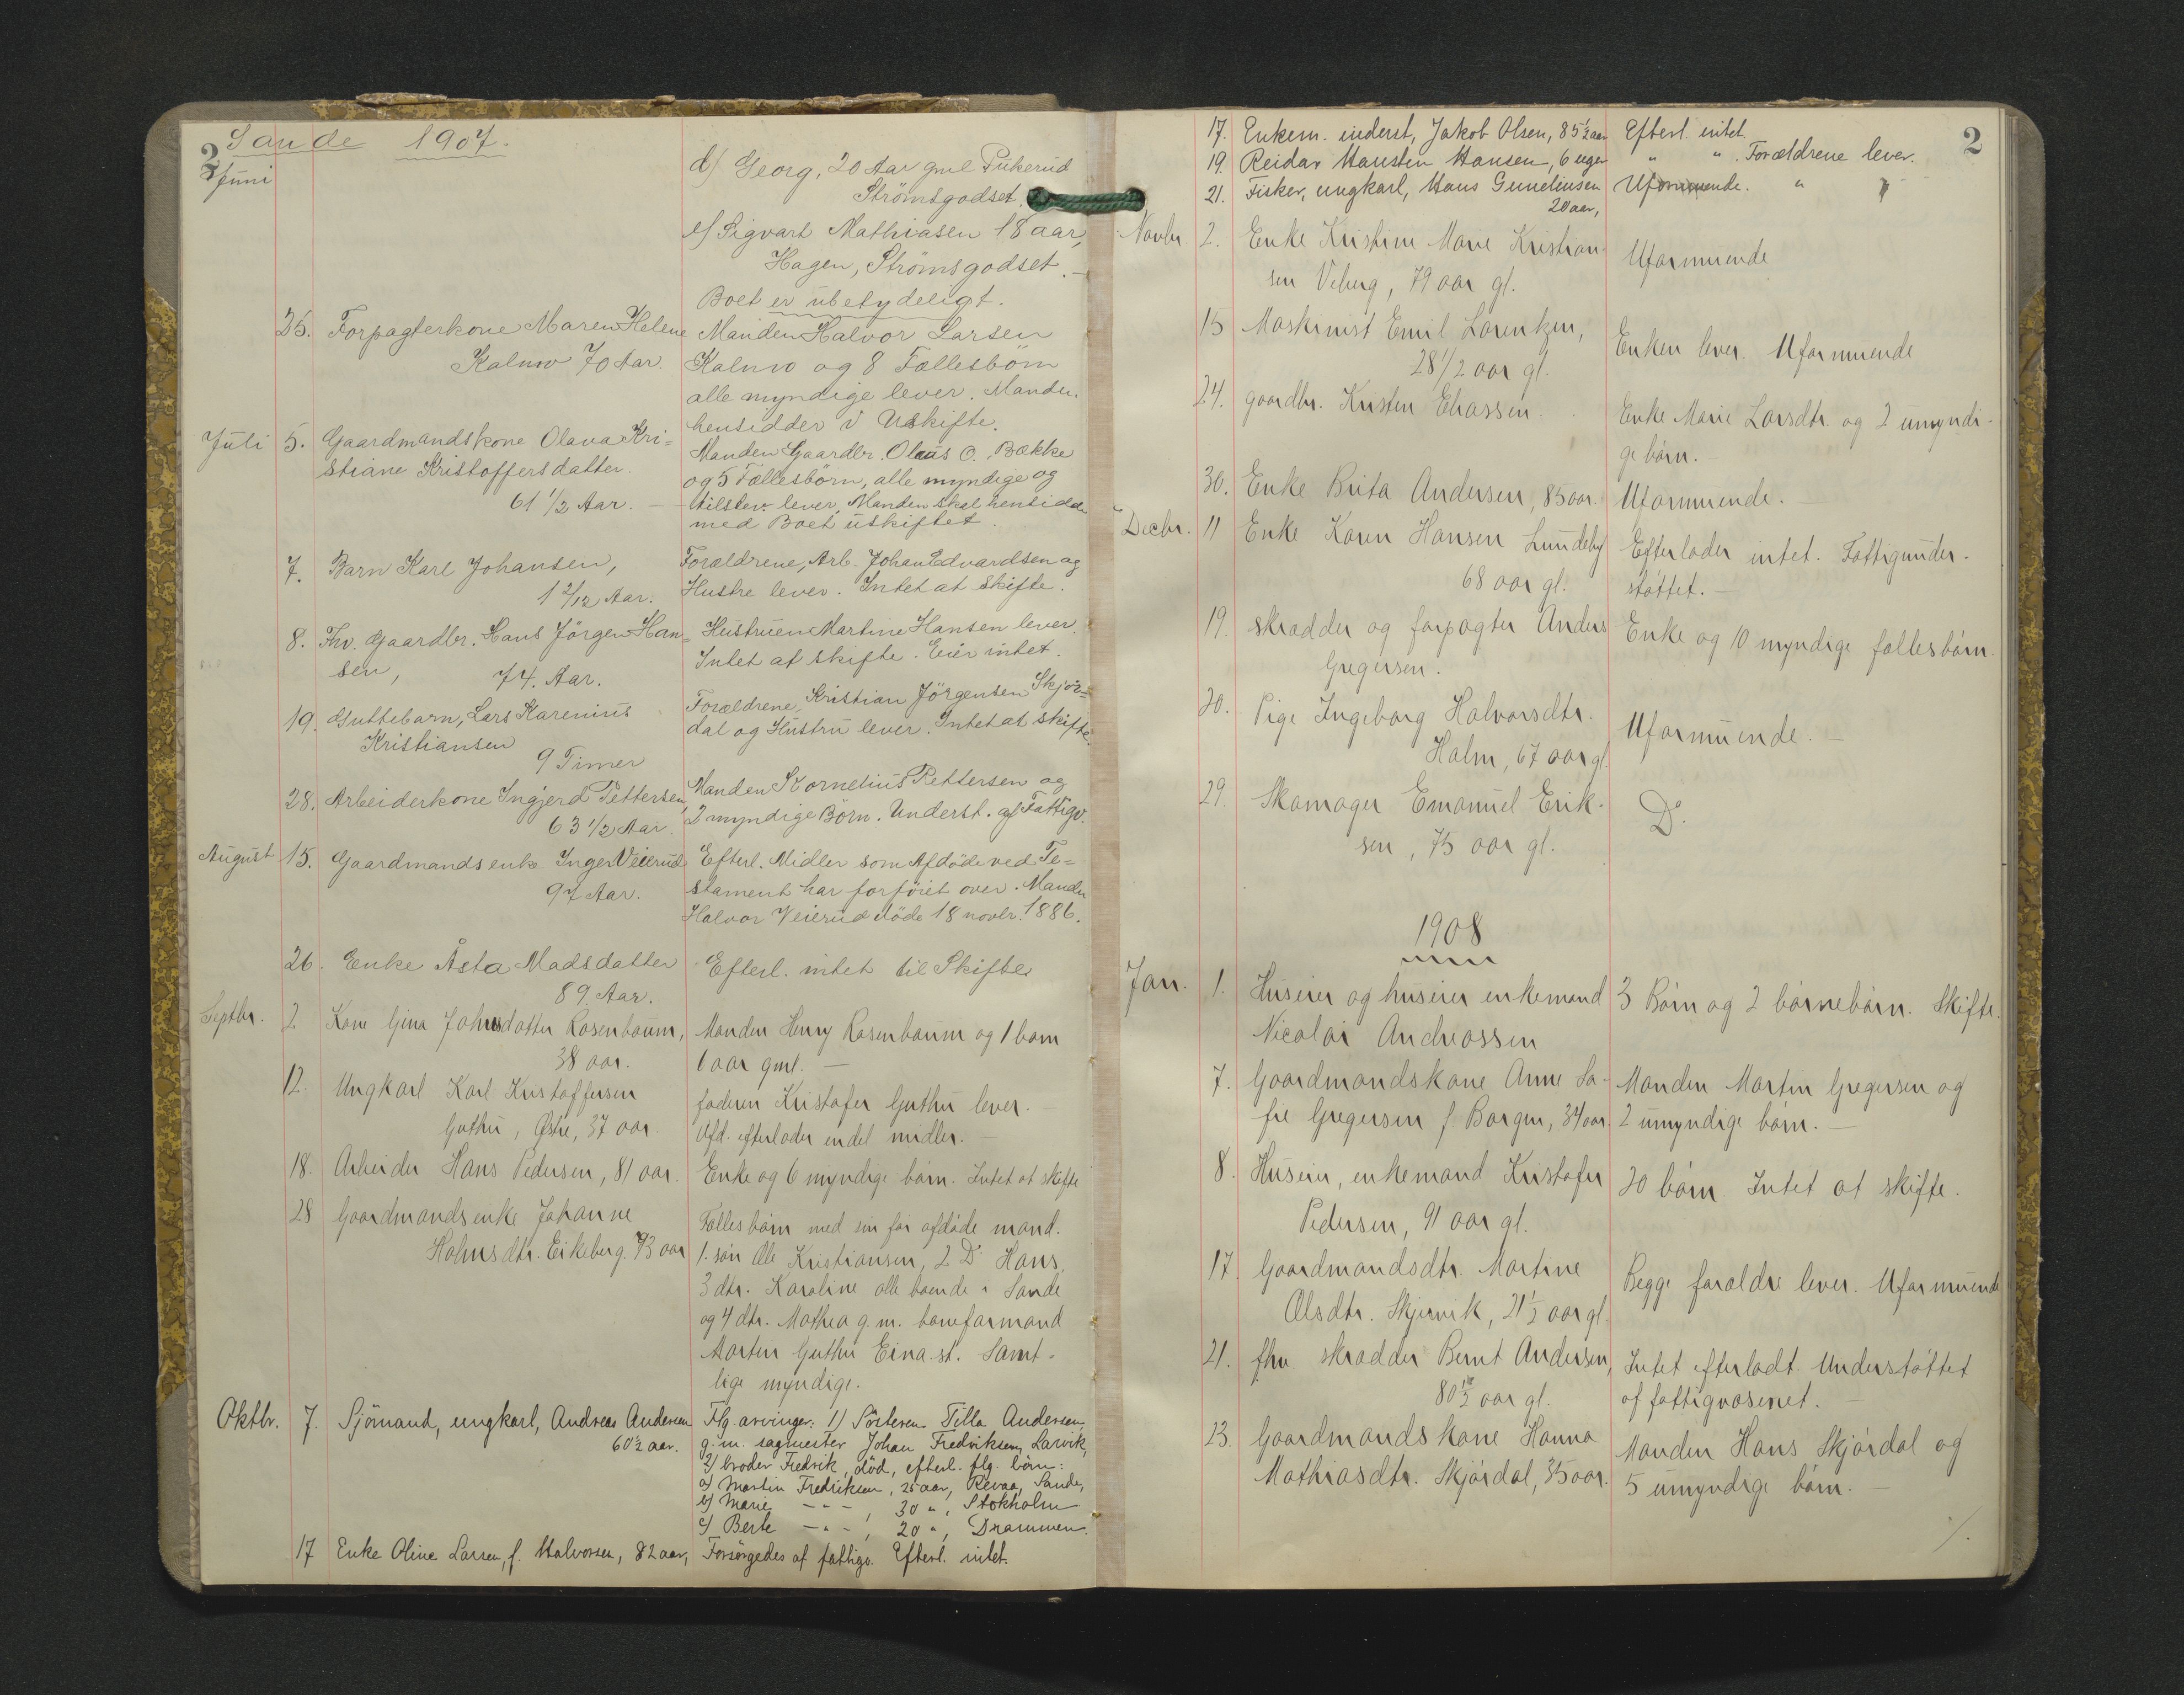 Sande 1907.
2
Juni
d) Georg, 20 Aar gml Pukerud
Strömsgodset.
e) Sigvart Mathiasen 18 aar,
Hagen, Strömsgodset.
Boet er ubetydeligt.
25. Forpagterkone Maren Helene
Kalnæs 70 Aar.
Manden Halvor Larsen
og 8 Fællesbörn
alle myndige lever. Manden
hensidder i Uskifte.
Juli 5. Gaardmandskone Olava Kri=
stiane Kristoffersdatter.
61 1/2 Aar. —
Manden Gaardbr. Olaus O. Bække
og 5 Fællesbörn, alle myndige og
lever. Manden skal hensidde
med Boet uskiftet.
7. Barn Karl Johansen,
1 2/12 Aar.
Forældrene, Arb. Johan Edvardsen og
Hustre lever. Intet at skifte.
8. Fhv. Gaardbr. Hans Jörgen Han=
sen, 74. Aar.
Hustruen Martine Hansen lever.
Intet at skifte. Eier intet.
19. Guttebarn, Lars Karenius
Kristiansen
9 Timer
Forældrene, Kristian Jörgensen Skjör=
dal og Hustru lever. Intet at skifte.
28. Arbeiderkone Ingjerd Pettersen,
63 1/2 Aar.
Manden Kornelius Pettersen og
2 myndige Börn. Underst. af Fattigv.
August 15. Gaardmandsenke Inger Veierud
97 Aar.
Efterl. Midler som Afdöde ved Te=
stament har forföiet over. Manden
Halvor Veierud döde 18 novbr. 1886.
26. Enke Åsta Madsdatter
89. Aar.
Efterl. intet til Skifte
Septbr. 2 Kone Gina Johnsdatter Rosenbaum,
38 aar.
Manden Henry Rosenbaum og 1 barn
1 aar gml. —
12. Ungkarl Karl Kristoffersen
Guthu, Østre, 37 aar.
faderen Kristofer Guthu lever. —
Afd. efterlader endel midler. —
18. Arbeider Hans Pedersen, 81 aar.
Enke og 6 myndige börn. Intet at skifte
28 Gaardmandsenke Johanne
Holmsdtr. Eikeberg. 73 aar
Fælles börn med sin för afdöde mand.
1. sön Ole Kristiansen, 2 Do Hans,
3 dtr. Karoline alle boende i Sande
og 4 dtr. Mathea g. m. baneformand
Martin Guthu Eina st. Samt-
lige myndige.
Oktbr. 7. Sjömand, ungkarl, Andreas Andersen
60 1/2 aar.
Flg. arvinger: 1) Sösteren Tilla Andersen,
g. m. sagmester Johan Fredriksen, Larvik,
2) broder Fredrik, död, efterl. flg. börn:
a) Martin Fredriksen, 25 aar, Revaa, Sande,
b) Marie — " — , 30 " , Stokholm
c) Berte — " — , 20 " , Drammen.
17 Enke Oline Larsen, f. Halvorsen, 82 aar,
Forsörgedes af fattigv. Efterl. intet.
2
17. Enkem. inderst, Jakob Olsen, 85 1/2 aar
Efterl. intet.
19. Reidar Hansten Hansen, 6 uger
" " Forældrene lever.
21. Fisker, ungkarl, Hans Gundinsen
20 aar,
Uformuende. " "
Novbr. 2. Enke Kristine Marie Kristian-
sen Viberg, 79 aar gl.
Uformuende
15 Maskinist Emil Lorentzen,
28 1/2 aar gl.
Enken lever. Uformuende
24. gaardbr. Kristen Eliassen.
Enke Marie Larsdtr. og 2 umyndi-
ge börn.
30. Enke Brita Andersen, 85 aar.
Uformuende. —
Decbr. 11 Enke Karen Hansen Lundeby
68 aar gl.
Efterlader intet. Fattigunder-
støttet. —
19. skrædder og forpagter Anders
Gregersen.
Enke og 10 myndige fællesbörn.
20. Pige Ingeborg Halvorsdtr.
Holm, 67 aar gl.
Uformuende. —
29. Skomager Emanuel Erik-
sen, 75 aar gl.
Do.
1908
Jan. 1. Huseier og huseier enkemand
Nicolai Andreassen
3 Börn og 2 börnebörn. Skifte.
7. Gaardmandskone Anne So-
fie Gregersen f. Borgen, 34 aar.
Manden Martin Gregersen og
2 umyndige börn. —
8. Huseier, enkemand Kristofer
Pedersen, 91 aar gl.
20 börn. Intet at skifte.
17. Gaardmandsdtr. Martine
Olsdtr. Skjervik, 21 1/2 aar gl.
Begge forældre lever. Uformuende
21. fhv. skrædder Bernt Andersen,
80 1/2 aar gl.
Intet efterladt. Understöttet
af fattigvæsenet. —
23. Gaardmandskone Hanna
Mathiasdtr. Skjördal, 35 aar.
Manden Hans Skjördal og
5 umyndige börn. —
./.